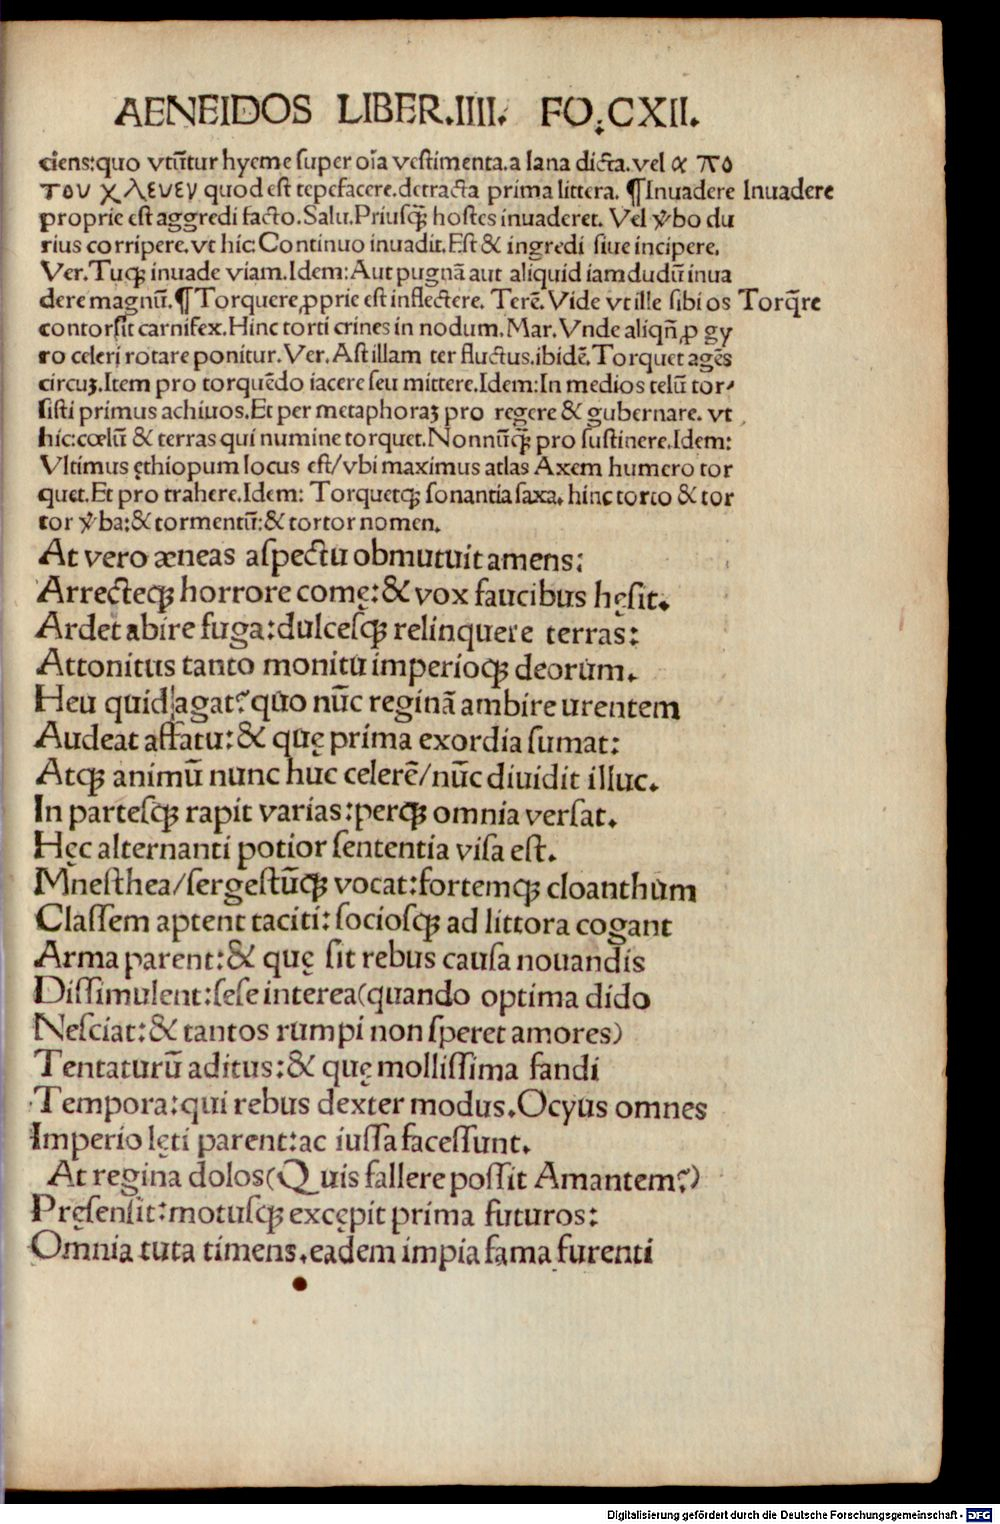 AENEIDOS LIBER.IIII. FO.CXII.
ciens:quo vtũtur hyeme super oĩa vestimenta.a lana dicta.vel α πο
του χλευευ quod est tepefacere.detracta prima littera. ¶Inuadere Inuadere
proprie est aggredi facto.Salu.Priusq̃ hostes inuaderet. Vel ꝟbo du
rius corripere.vt hic:Continuo inuadit.Est & ingredi siue incipere.
Ver.Tuqꝫ inuade viam.Idem:Aut pugnã aut aliquid iamdudũ inua
dere magnũ.¶Torquere ꝓprie est inflectere. Terẽ.Vide vt ille sibi os Torq̃re
contorsit carnifex.Hinc torti crines in nodum.Mar.Vnde aliqñ ꝓ gy
ro celeri rotare ponitur.Ver.Ast illam ter fluctus.ibidẽ.Torquet agẽs
circuꝫ.Item pro torquẽdo iacere seu mittere.Idem:In medios telũ tor-
sisti primus achiuos.Et per metaphoraꝫ pro regere & gubernare. vt
hic:cœlũ & terras qui numine torquet.Nonnũq̃ pro sustinere.Idem:
Vltimus ęthiopum locus est/vbi maximus atlas Axem humero tor
quet.Et pro trahere.Idem: Torquetqꝫ sonantia saxa. hinc torto & tor
tor ꝟba:& tormentũ:& tortor nomen.
At vero æneas aspectu obmutuit amens:
Arrecteqꝫ horrore comę:& vox faucibus hęsit.
Ardet abire fuga:dulcesqꝫ relinquere terras:
Attonitus tanto monitu imperioqꝫ deorum.
Heu quid agat? quo nũc reginã ambire urentem
Audeat affatu:& quę prima exordia sumat:
Atqꝫ animũ nunc huc celerẽ/nũc diuidit illuc.
In partesqꝫ rapit varias:perqꝫ omnia versat.
Hęc alternanti potior sententia visa est.
Mnesthea/sergestũqꝫ vocat:fortemqꝫ cloanthum
Classem aptent taciti:sociosqꝫ ad littora cogant
Arma parent:& quę sit rebus causa nouandis
Dissimulent:sese interea(quando optima dido
Nesciat:& tantos rumpi non speret amores)
Tentaturũ aditus:& quę mollissima fandi
Tempora:qui rebus dexter modus.Ocyus omnes
Imperio lęti parent:ac iussa facessunt.
At regina dolos(Quis fallere possit Amantem?)
Pręsensit:motusqꝫ excępit prima futuros:
Omnia tuta timens.eadem impia fama furenti
Digitalisierung gefördert durch die Deutsche Forschungsgemeinschaft - DFG